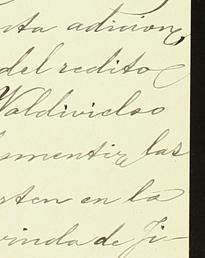 nta adicion,
del redito
Valdivielso
lamentir, las
rten en la
vinda de Ji-